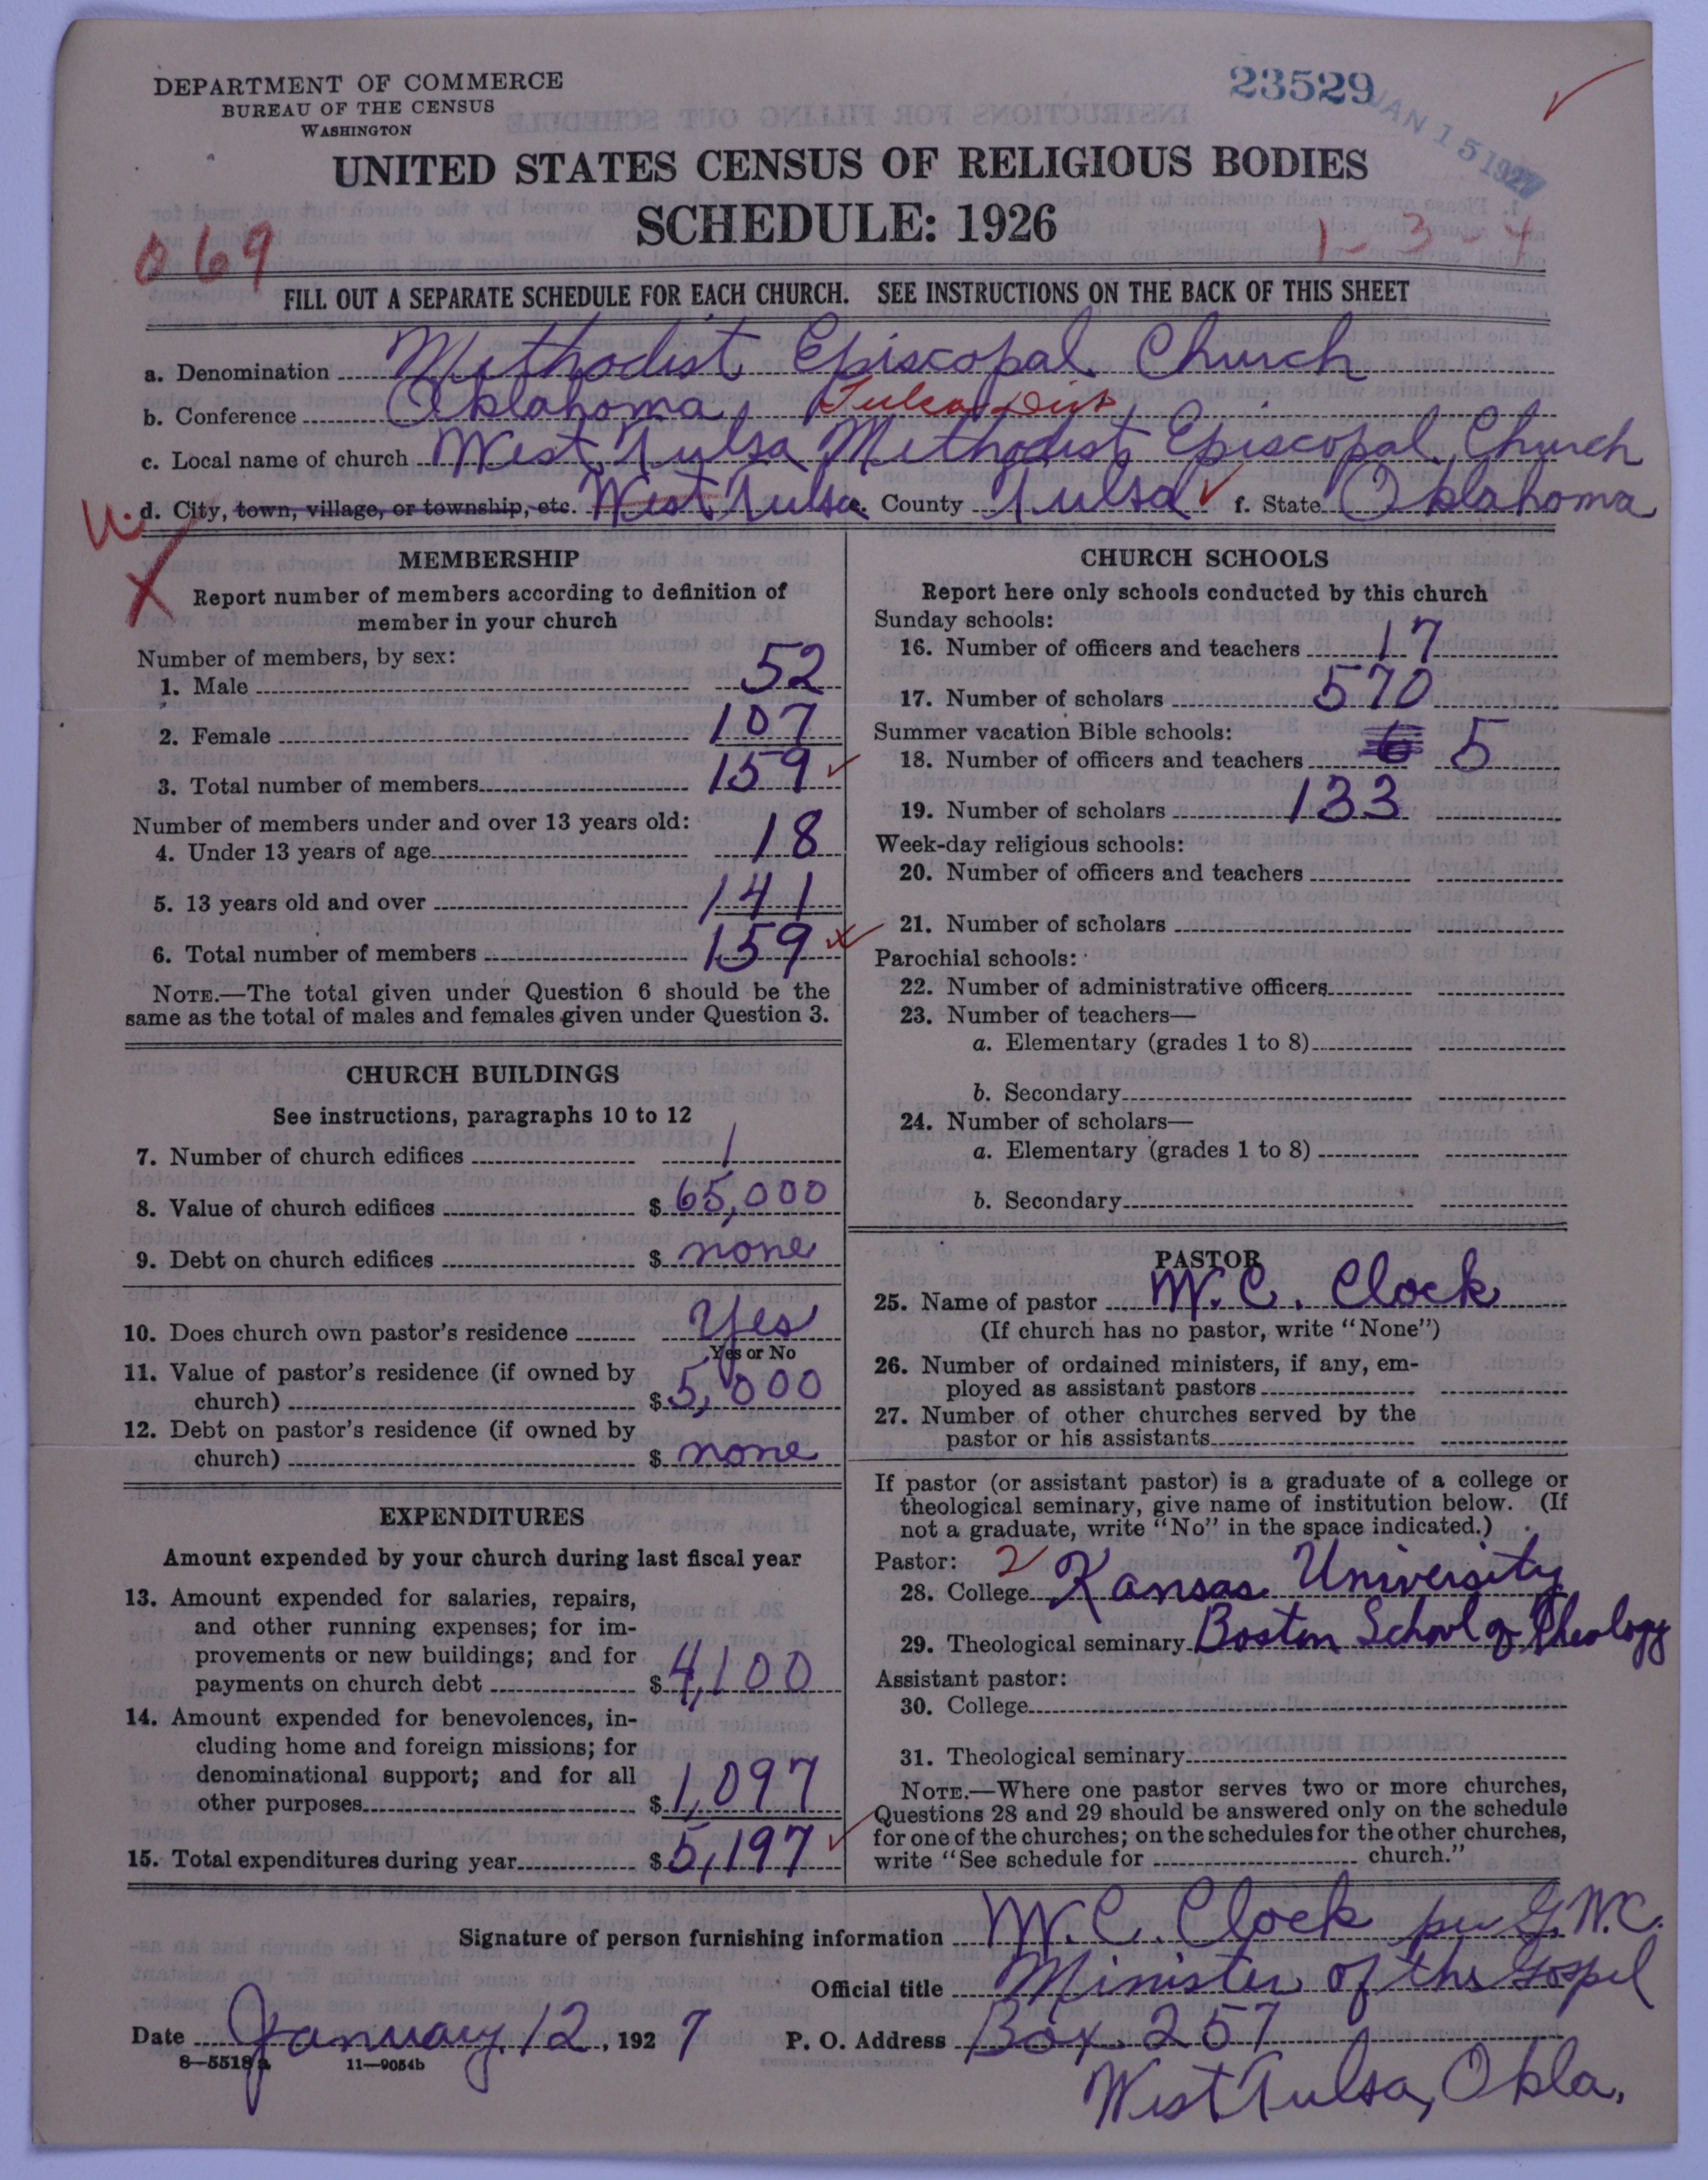 DEPARTMENT OF COMMERCE
BUREAU OF THE CENSUS
WASHINGTON
23529
JAN 15 1927
UNITED STATES CENSUS OF RELIGIOUS BODIES
SCHEDULE: 1926
069
1-3-4
FILL OUT A SEPARATE SCHEDULE FOR EACH CHURCH. SEE INSTRUCTIONS ON THE BACK OF THIS SHEET
a. Denomination Methodist Episcopal Church
b. Conference Oklahoma, Tulsa Dist
c. Local name of church West Tulsa Methodist Episcopal Church
d. City, town, village, or township, etc. West Tulsa e. County Tulsa f. State Oklahoma
MEMBERSHIP
Report number of members according to definition of
member in your church
Number of members, by sex:
1. Male 52
2. Female 107
3. Total number of members 159
Number of members under and over 13 years old:
4. Under 13 years of age 18
5. 13 years old and over 141
6. Total number of members 159
NOTE.—The total given under Question 6 should be the
same as the total of males and females given under Question 3.
CHURCH BUILDINGS
See instructions, paragraphs 10 to 12
7. Number of church edifices 1
8. Value of church edifices $65,000
9. Debt on church edifices $ none
10. Does church own pastor's residence Yes
Yes or No
11. Value of pastor's residence (if owned by
church) $5,000
12. Debt on pastor's residence (if owned by
church) $ none
EXPENDITURES
Amount expended by your church during last fiscal year
13. Amount expended for salaries, repairs,
and other running expenses; for im-
provements or new buildings; and for
payments on church debt $4,100
14. Amount expended for benevolences, in-
cluding home and foreign missions; for
denominational support; and for all
other purposes $1,097
15. Total expenditures during year $5,197
CHURCH SCHOOLS
Report here only schools conducted by this church
Sunday schools:
16. Number of officers and teachers 17
17. Number of scholars 570
Summer vacation Bible schools:
18. Number of officers and teachers 6 5
19. Number of scholars 133
Week-day religious schools:
20. Number of officers and teachers
21. Number of scholars
Parochial schools:
22. Number of administrative officers
23. Number of teachers—
a. Elementary (grades 1 to 8)
b. Secondary
24. Number of scholars—
a. Elementary (grades 1 to 8)
b. Secondary
PASTOR
25. Name of pastor W. C. Clock
(If church has no pastor, write "None")
26. Number of ordained ministers, if any, em-
ployed as assistant pastors
27. Number of other churches served by the
pastor or his assistants
If pastor (or assistant pastor) is a graduate of a college or
theological seminary, give name of institution below. (If
not a graduate, write "No" in the space indicated.)
Pastor: 2
28. College Kansas University
29. Theological seminary Boston School of Theology
Assistant pastor:
30. College
31. Theological seminary
NOTE.—Where one pastor serves two or more churches,
Questions 28 and 29 should be answered only on the schedule
for one of the churches; on the schedules for the other churches,
write "See schedule for church."
Signature of person furnishing information W. C. Clock per G.W.C.
Official title Minister of the Gospel
Date January 12, 1927 P. O. Address Box 257
8—5518a 11—9054b
West Tulsa, Okla.